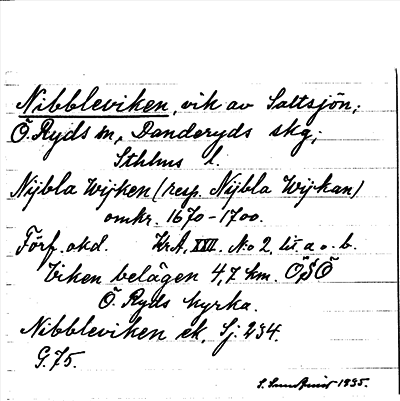 Nibbleviken, vik av Saltsjön;
Ö. Ryds sn, Danderyds skg;
Sthlms l.
Nÿbla Wijken (resp. Nÿbla Wijkan)
omkr. 1670-1700.
Förf. okd. Kr.A., XXII. No 2, lit. a o. b.
Viken belägen 4,7 km. ÖSÖ
Ö. Ryds kyrka.
Nibbleviken ek. Sj. 234.
G. 75.
1935.